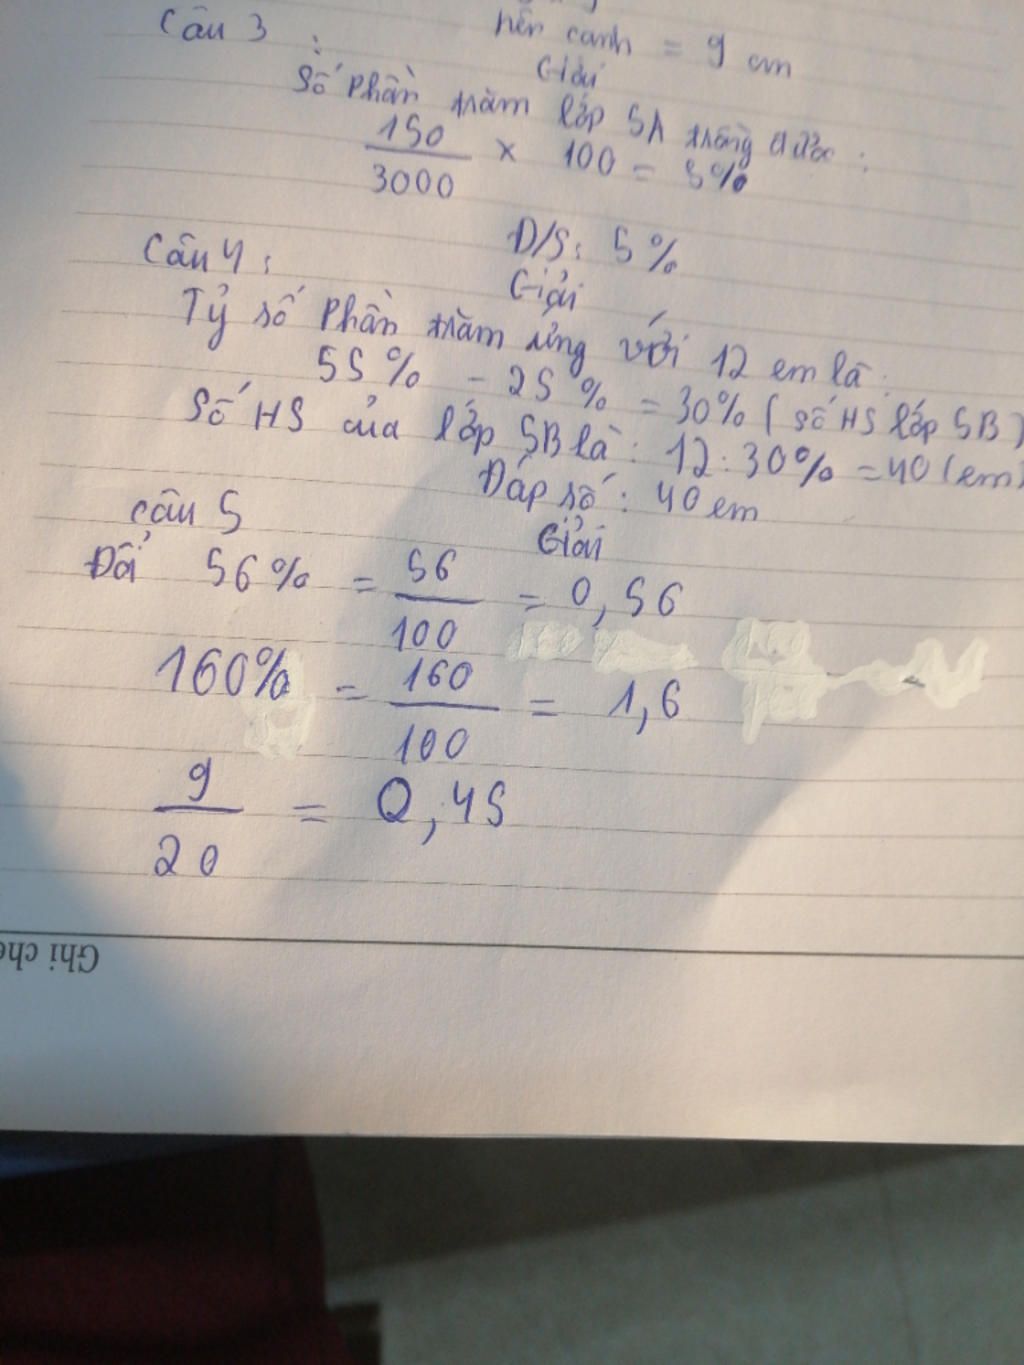 nên cạnh = 9 cm
Câu 3 :
Giải
Số phần trăm lớp 5A trồng được :
150
3000
× 100 = 5%
Đ/S: 5%
Câu 4 :
Giải
Tỷ số phần trăm ứng với 12 em là :
55% - 25% = 30% ( số HS lớp 5B )
Số HS của lớp 5B là : 12 : 30% = 40 (em)
Đáp số : 40 em
câu 5
Giải
Đổi 56% = 56/100 = 0,56
160% = 160/100 = 1,6
9/20 = 0,45
Ghi ch